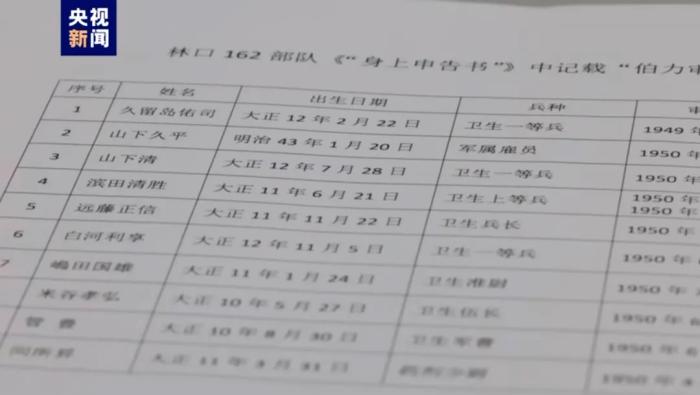 央视
新闻
林口 162 部队《“身上申告书”》中记载“伯力
序号 姓名 出生日期 兵种
1 久留岛佑司 大正 12 年 2 月 22 日 卫生一等兵 1949 年
2 山下久平 明治 43 年 1 月 20 日 军属雇员 1950 年
3 山下清 大正 12 年 7 月 28 日 卫生一等兵 1950 年
4 滨田清胜 大正 11 年 6 月 21 日 卫生上等兵 1950 年
1950 年
5 远藤正信 大正 11 年 11 月 22 日 卫生兵长 1950 年
6 白河利享 大正 12 年 11 月 5 日 卫生一等兵 1950 年
7 嶋田国雄 大正 11 年 1 月 24 日 卫生准尉 1950 年
米谷孝弘 大正 10 年 5 月 27 日 卫生伍长 1950 年
大正 10 年 8 月 30 日 卫生军曹 1950 年
大正 11 年 3 月 31 日 1950 年